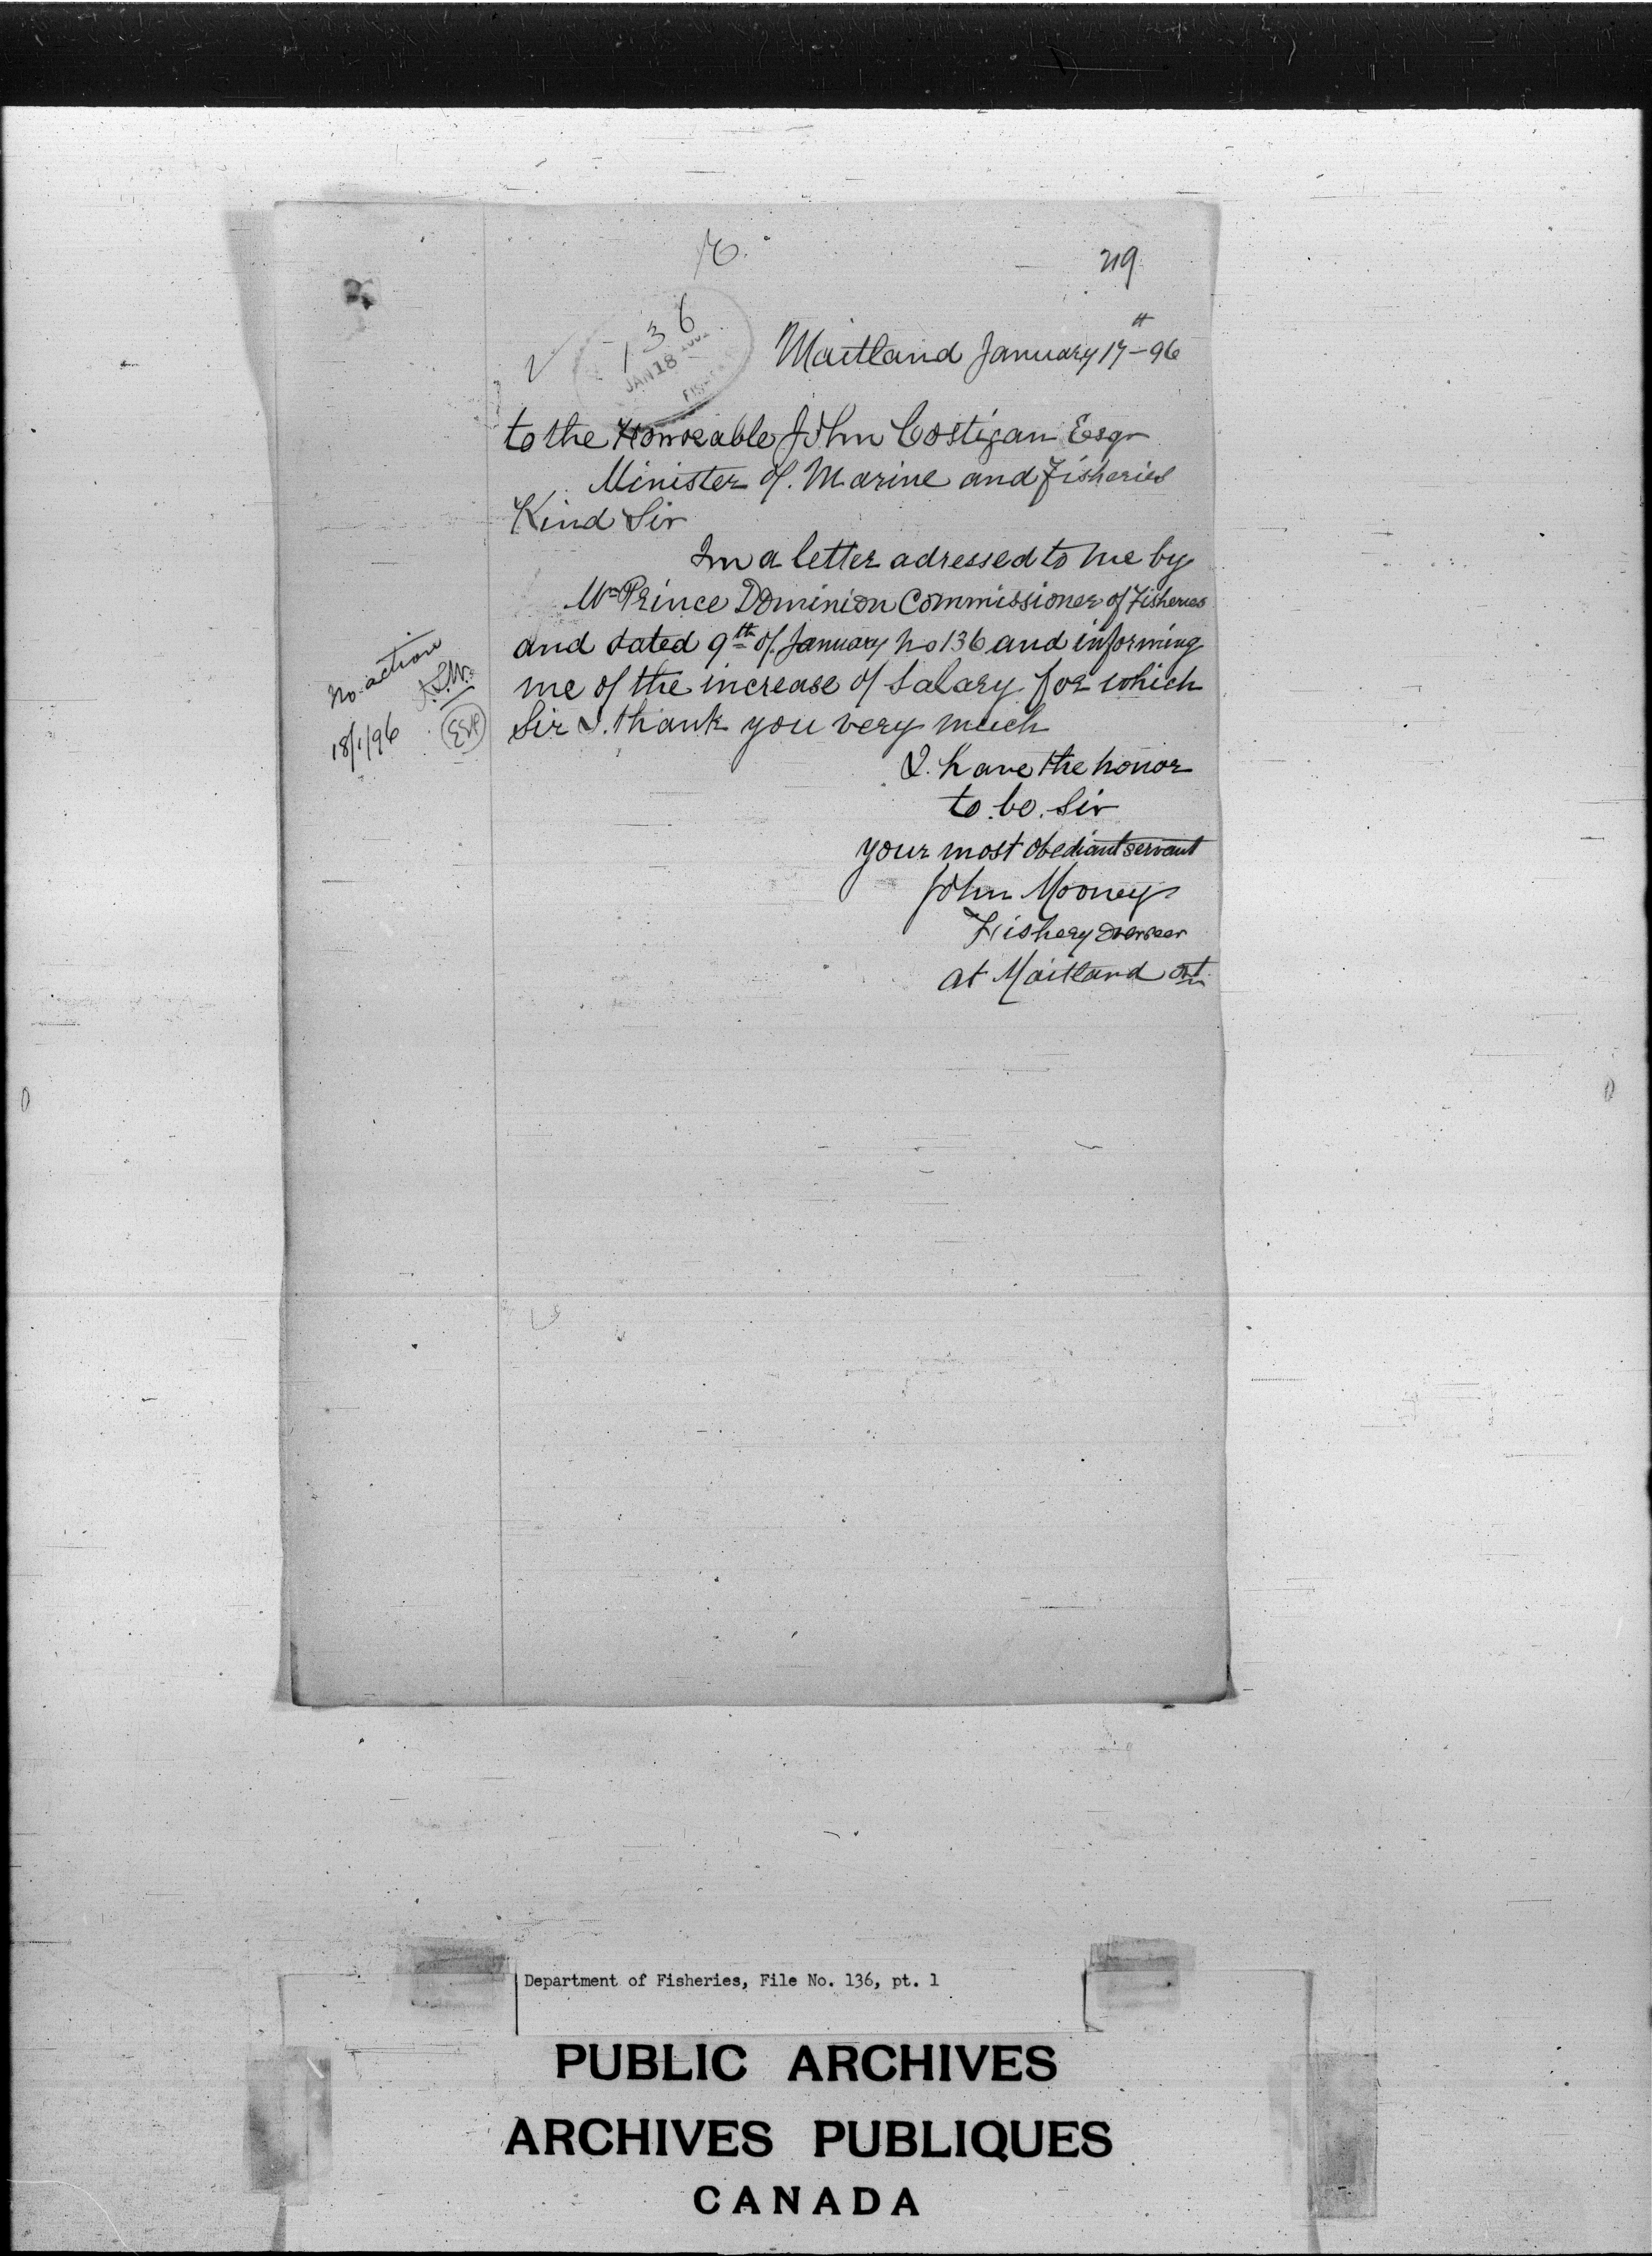 219
136
JAN 18
FISHE
Maitland January 17th - 96
to the Honorable John Costigan Esqr
Minister of Marine and Fisheries
Kind Sir
In a letter adressed to me by
Mr Prince Dominion Commissioner of Fisheries
and dated 9th of January No 136 and informing
me of the increase of Salary for which
Sir I. thank you very much
No action
18/1/96
I. have the honor
to be. Sir
your most obediant servant
John Mooney
Fishery Overseer
at Maitland Ont
Department of Fisheries, File No. 136, pt. 1
PUBLIC ARCHIVES
ARCHIVES PUBLIQUES
CANADA